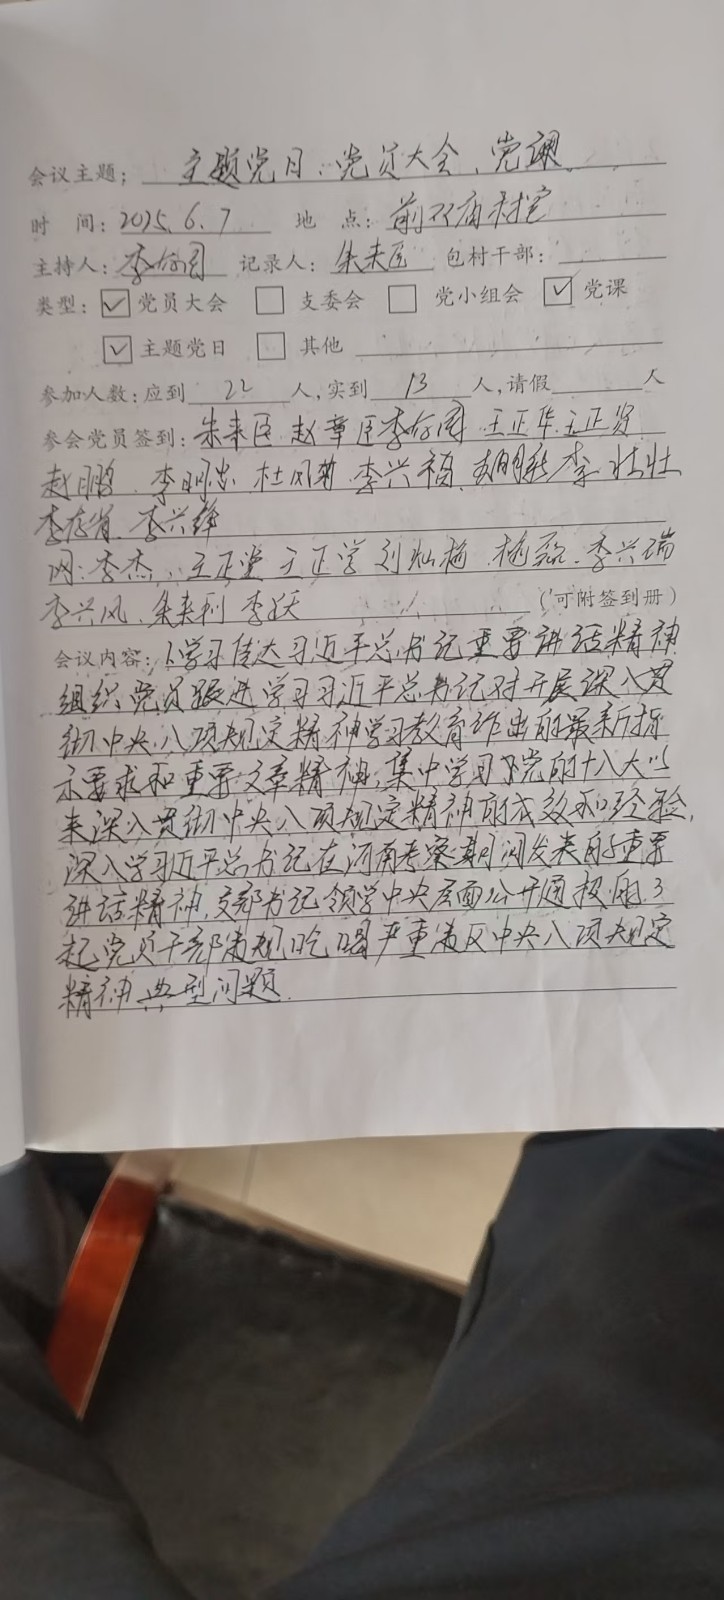 会议主题：主题党日、党员大会、党课
时 间：2025.6.7 地 点：前双庙村室
主持人：李存阁 记录人：朱来臣 包村干部：
类型：☑党员大会 □支委会 □党小组会 ☑党课
☑主题党日 □其他
参加人数：应到 22 人，实到 13 人，请假 人
参会党员签到：朱来臣 赵章臣 李存阁 王正华 王正贤
赵鹏 李明忠 杜凤菊 李兴福 李壮壮
李存省 李兴锋
网：李杰、王正堂 王正学 刘灿梅 李兴瑞
李兴风、朱来利 李跃 （可附签到册）
会议内容：1、学习传达习近平总书记重要讲话精神
组织党员跟进学习习近平总书记对开展深入贯
彻中央八项规定精神学习教育作出的最新指
示要求和重要文章精神，集中学习了党的十八大以
来深入贯彻中央八项规定精神的成效和经验，
深入学习近平总书记在河南考察期间发表的重要
讲话精神，支部书记领学中央层面公开通报的3
起党员干部违规吃喝严重违反中央八项规定
精神典型问题.